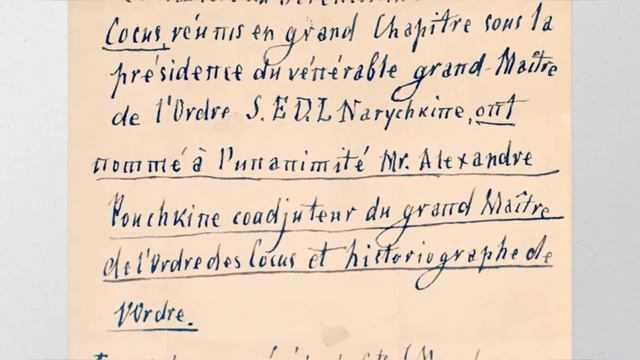 Cocus, réunis en grand Chapitre sous la
présidence du vénérable grand-Maître
de l'Ordre S. E D. L Narychkine, ont
nommé à l'unanimité Mr. Alexandre
Pouchkine coadjuteur du grand Maître
de l'Ordre des Cocus et historiographe de
l'Ordre.